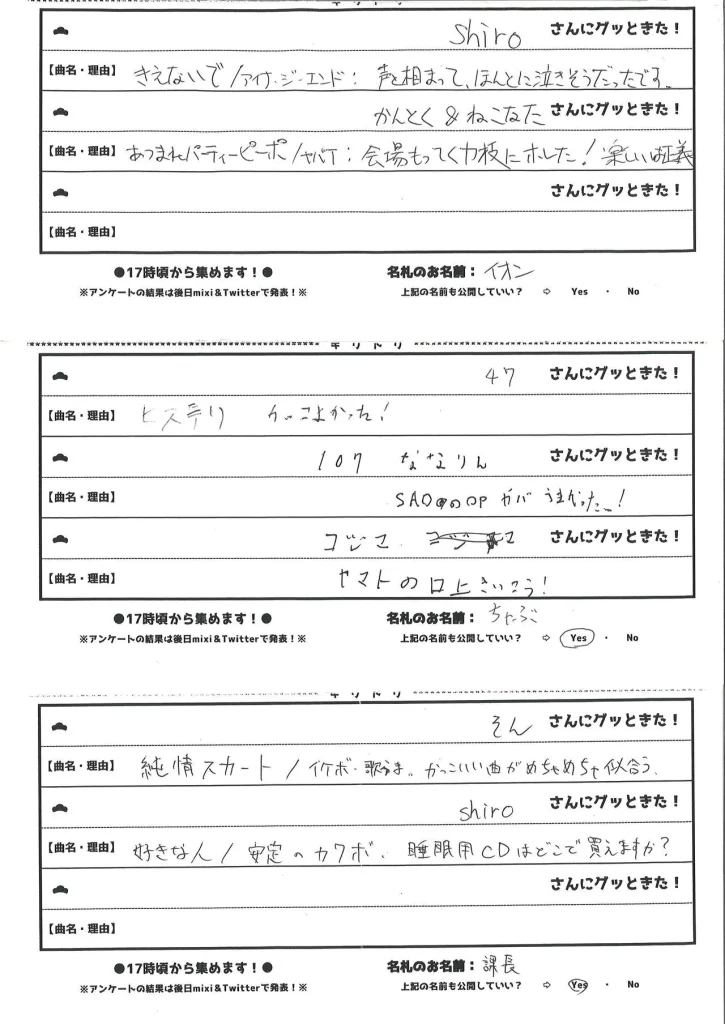 shiro さんにグッときた!
【曲名・理由】 きえないで/アイナ・ジ・エンド: 声と相まって、ほんとに泣きそうだったです。
かんとく & ねこなた さんにグッときた!
【曲名・理由】 あつまれパーティーピーポー/ヤバT: 会場もってく力技にホレた! 楽しいは正義
さんにグッときた!
【曲名・理由】
●17時頃から集めます!● 名札のお名前: イオン
※アンケートの結果は後日mixi&Twitterで発表!※ 上記の名前も公開していい? ⇨ Yes ・ No
キリトリ
47 さんにグッときた!
【曲名・理由】 かっこよかった!
107 ななりん さんにグッときた!
【曲名・理由】 SAOのOP ヤバ うまかったー!
コジマ さんにグッときた!
【曲名・理由】 ヤマトの口上さいこう!
●17時頃から集めます!● 名札のお名前: ちゃぶ
※アンケートの結果は後日mixi&Twitterで発表!※ 上記の名前も公開していい? ⇨ Yes ・ No
キリトリ
そん さんにグッときた!
【曲名・理由】 純情スカート / イケボ・歌うま。かっこいい曲がめちゃめちゃ似合う。
shiro さんにグッときた!
【曲名・理由】 好きな人 / 安定のカワボ、睡眠用CDはどこで買えますか?
さんにグッときた!
【曲名・理由】
●17時頃から集めます!● 名札のお名前: 課長
※アンケートの結果は後日mixi&Twitterで発表!※ 上記の名前も公開していい? ⇨ Yes ・ No